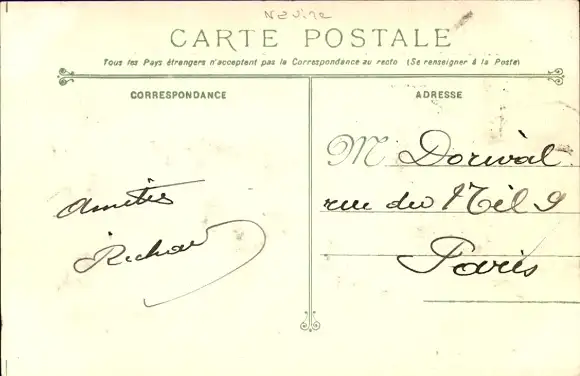 Navire
CARTE POSTALE
Tous les Pays étrangers n'acceptent pas la Correspondance au recto (Se renseigner à la Poste)
CORRESPONDANCE
ADRESSE
M Dorival
rue du Nil 9
Paris
Amitiés
Richard